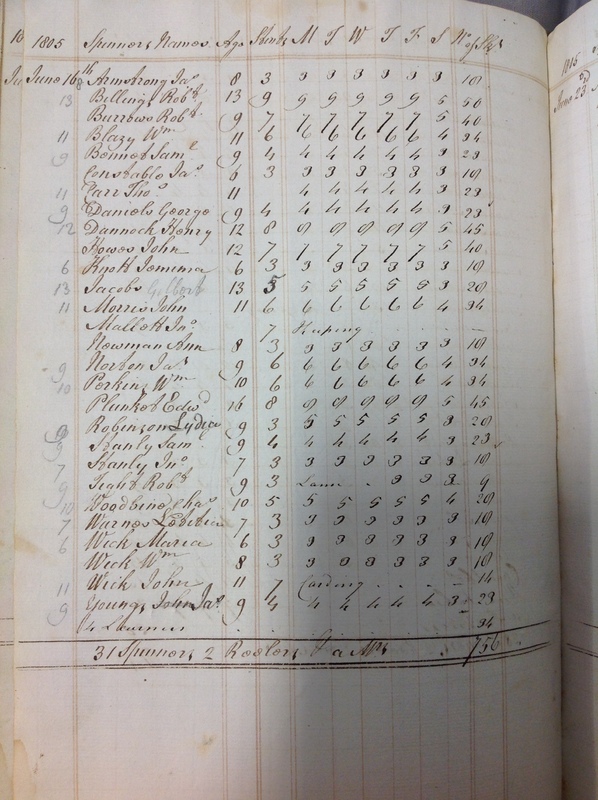 1805 Spinners Names Age Stints M T W T F S No of Sks
June 16th Armstrong Jas 8 3 3 3 3 3 3 3 18
13 Billings Robt 13 9 9 9 9 9 9 5 50
Burrows Robt 9 7 7 7 7 7 7 5 40
11 Blazy Wm 11 6 6 6 6 6 6 4 34
9 Bennet Saml 9 4 4 4 4 4 4 3 23
Constable Jas 6 3 3 3 3 3 3 3 18
11 Carr Thos 11 4 4 4 4 4 3 23
9 Daniels George 9 4 4 4 4 4 4 3 23
12 Dannock Henry 12 8 8 8 8 8 8 5 45
Howes John 12 7 7 7 7 7 7 5 40
6 Knott Jemima 6 3 3 3 3 3 3 3 18
13 Jacobs Gilbert 13 5 5 5 5 5 5 3 28
11 Morris John 11 6 6 6 6 6 6 4 34
Mallett Jno 7
Newman Ann 8 3 3 3 3 3 3 3 18
9 Norton Jas 9 6 6 6 6 6 6 4 34
10 Perkins Wm 10 6 6 6 6 6 6 4 34
Plunket Edwd 16 8 8 8 8 8 8 5 45
9 Robinson Lydia 9 3 5 5 5 5 5 3 28
9 Stanly Sam 9 4 4 4 4 4 4 3 23
7 Stanly Jno 7 3 3 3 3 3 3 3 18
9 Tight Robt 9 3 Lame . 3 3 3 9
10 Woodbine Chas 10 5 5 5 5 5 5 4 28
7 Warnes Lobitia 7 3 3 3 3 3 3 3 18
6 Wick Maria 6 3 3 3 3 3 3 3 18
Wick Wm 8 3 3 3 3 3 3 3 18
11 Wick John 11 7 Carding . . . . 14
9 Youngs John Jas 9 4 4 4 4 4 4 3 23
4 Learners 34
31 Spinners 2 Reelers 756